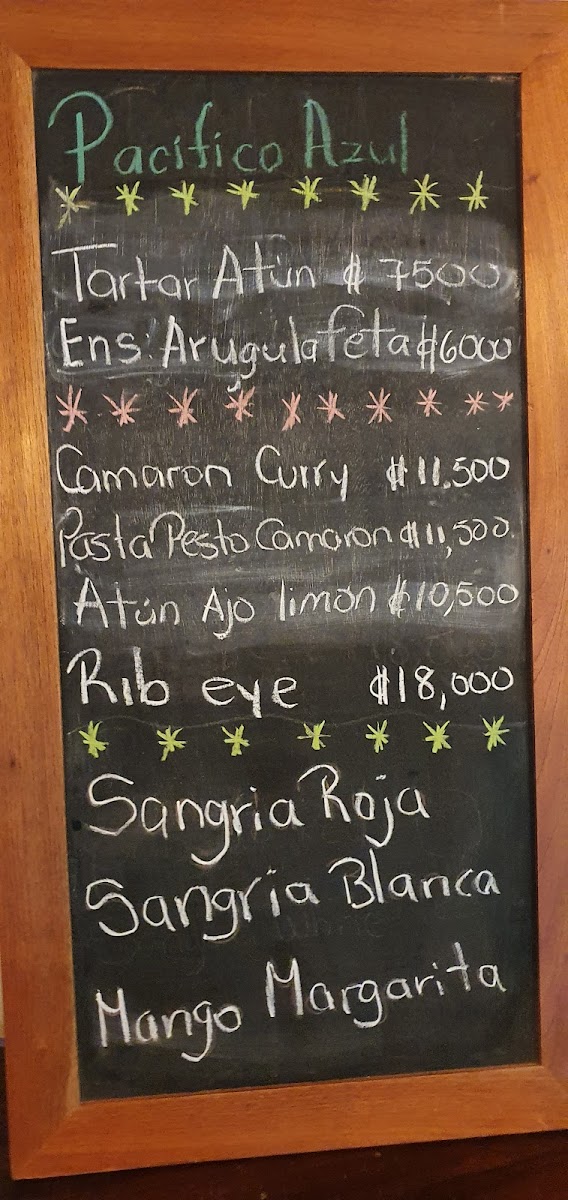 Pacífico Azul
Tartar Atún ₡ 7500
Ens. Arugula feta ₡6000
Camaron Curry ₡11.500
Pasta Pesto Camaron ₡11,500
Atún Ajo limón ₡10,500
Rib eye ₡18,000
Sangria Roja
Sangría Blanca
Mango Margarita